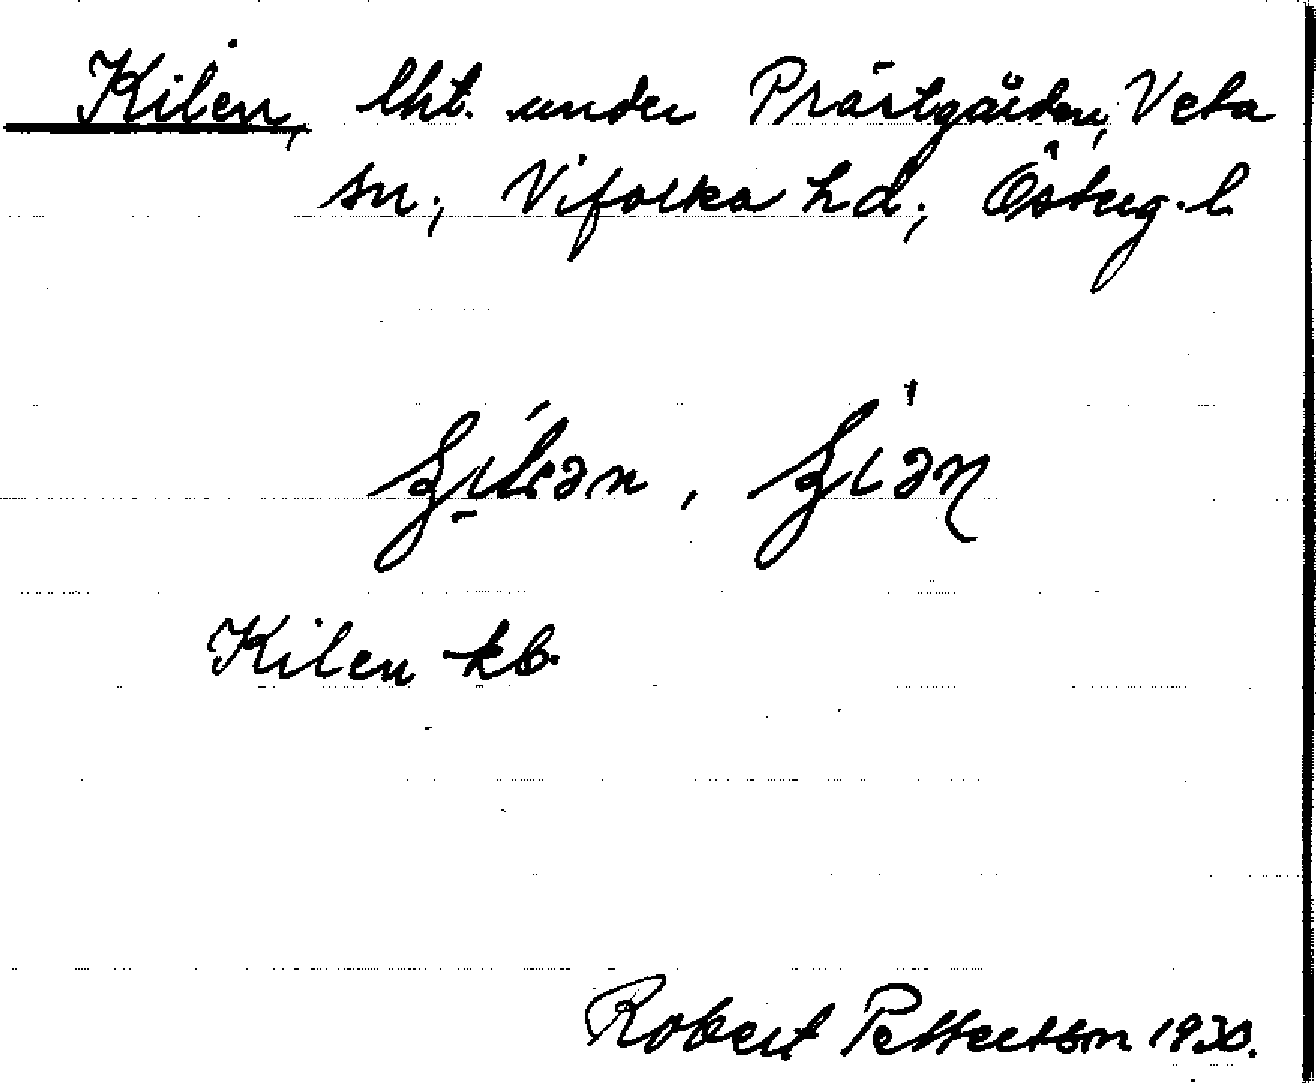 Kilen, lht. under Prästgården, Veta
sn., Vifolka hd., Österg. l.
Kilen kb.
Robert Pettersson 1930.